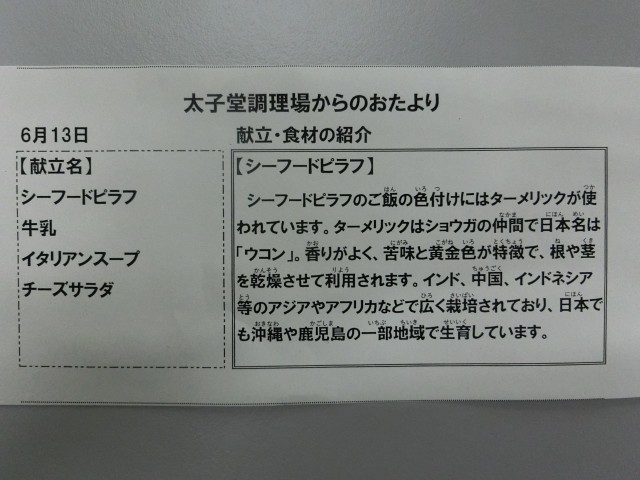 太子堂調理場からのおたより
6月13日
献立・食材の紹介
【献立名】
シーフードピラフ
牛乳
イタリアンスープ
チーズサラダ
【シーフードピラフ】
シーフードピラフのご飯の色付けにはターメリックが使
われています。ターメリックはショウガの仲間で日本名は
「ウコン」。香りがよく、苦味と黄金色が特徴で、根や茎
を乾燥させて利用されます。インド、中国、インドネシア
等のアジアやアフリカなどで広く栽培されており、日本で
も沖縄や鹿児島の一部地域で生育しています。